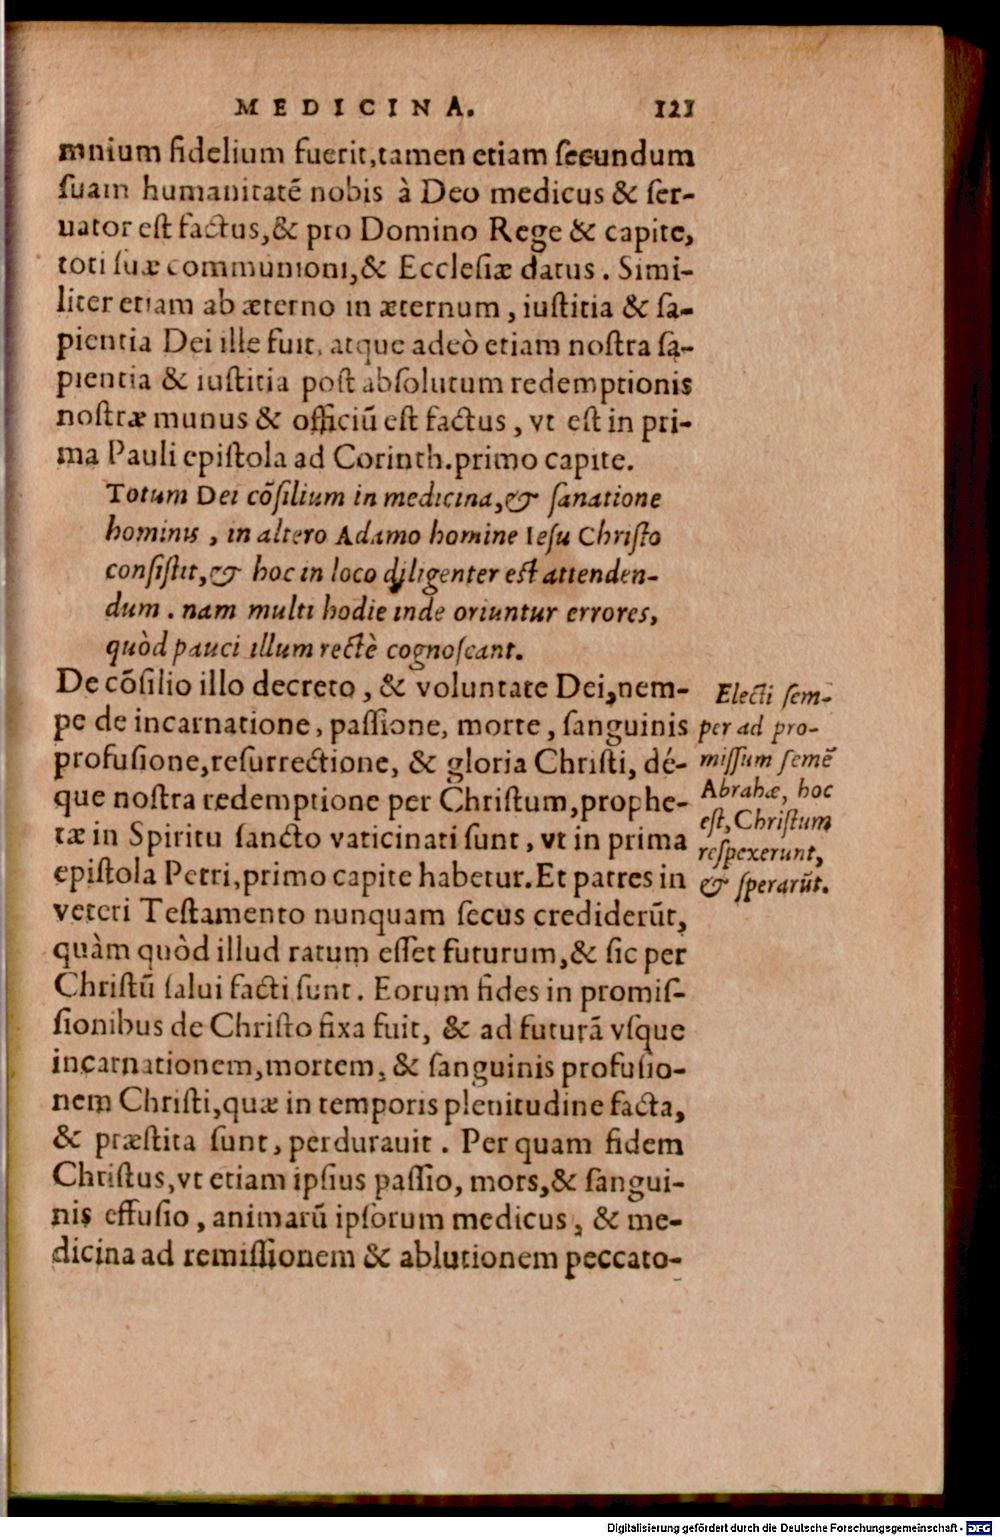 MEDICINA. 121
mnium fidelium fuerit,tamen etiam ſecundum
ſuam humanitatē nobis à Deo medicus & ſer-
uator eſt factus,& pro Domino Rege & capite,
toti ſuæ communioni,& Eccleſiæ datus. Simi-
liter etiam ab æterno in æternum, iuſtitia & ſa-
pientia Dei ille fuit, atque adeò etiam noſtra ſa-
pientia & iuſtitia poſt abſolutum redemptionis
noſtræ munus & officiū eſt factus, vt eſt in pri-
ma Pauli epiſtola ad Corinth.primo capite.
Totum Dei cōſilium in medicina,& ſanatione
hominis, in altero Adamo homine Ieſu Chriſto
conſiſtit,& hoc in loco diligenter eſt attenden-
dum. nam multi hodie inde oriuntur errores,
quòd pauci illum rectè cognoſcant.
De cōſilio illo decreto, & voluntate Dei,nem-
pe de incarnatione, paſſione, morte, ſanguinis
profuſione,reſurrectione, & gloria Chriſti, dé-
que noſtra redemptione per Chriſtum,prophe-
tæ in Spiritu ſancto vaticinati ſunt, vt in prima
epiſtola Petri,primo capite habetur.Et patres in
veteri Teſtamento nunquam ſecus crediderūt,
quàm quòd illud ratum eſſet futurum,& ſic per
Chriſtū ſalui facti ſunt. Eorum fides in promiſ-
ſionibus de Chriſto fixa fuit, & ad futurā vſque
incarnationem,mortem, & ſanguinis profuſio-
nem Chriſti,quæ in temporis plenitudine facta,
& præſtita ſunt, perdurauit. Per quam fidem
Chriſtus,vt etiam ipſius paſſio, mors,& ſangui-
nis effuſio, animarū ipſorum medicus, & me-
dicina ad remiſſionem & ablutionem peccato-
Electi ſem-
per ad pro-
miſſum ſemē
Abrahæ, hoc
eſt, Chriſtum
reſpexerunt,
& ſperarūt.
Digitalisierung gefördert durch die Deutsche Forschungsgemeinschaft - DFG